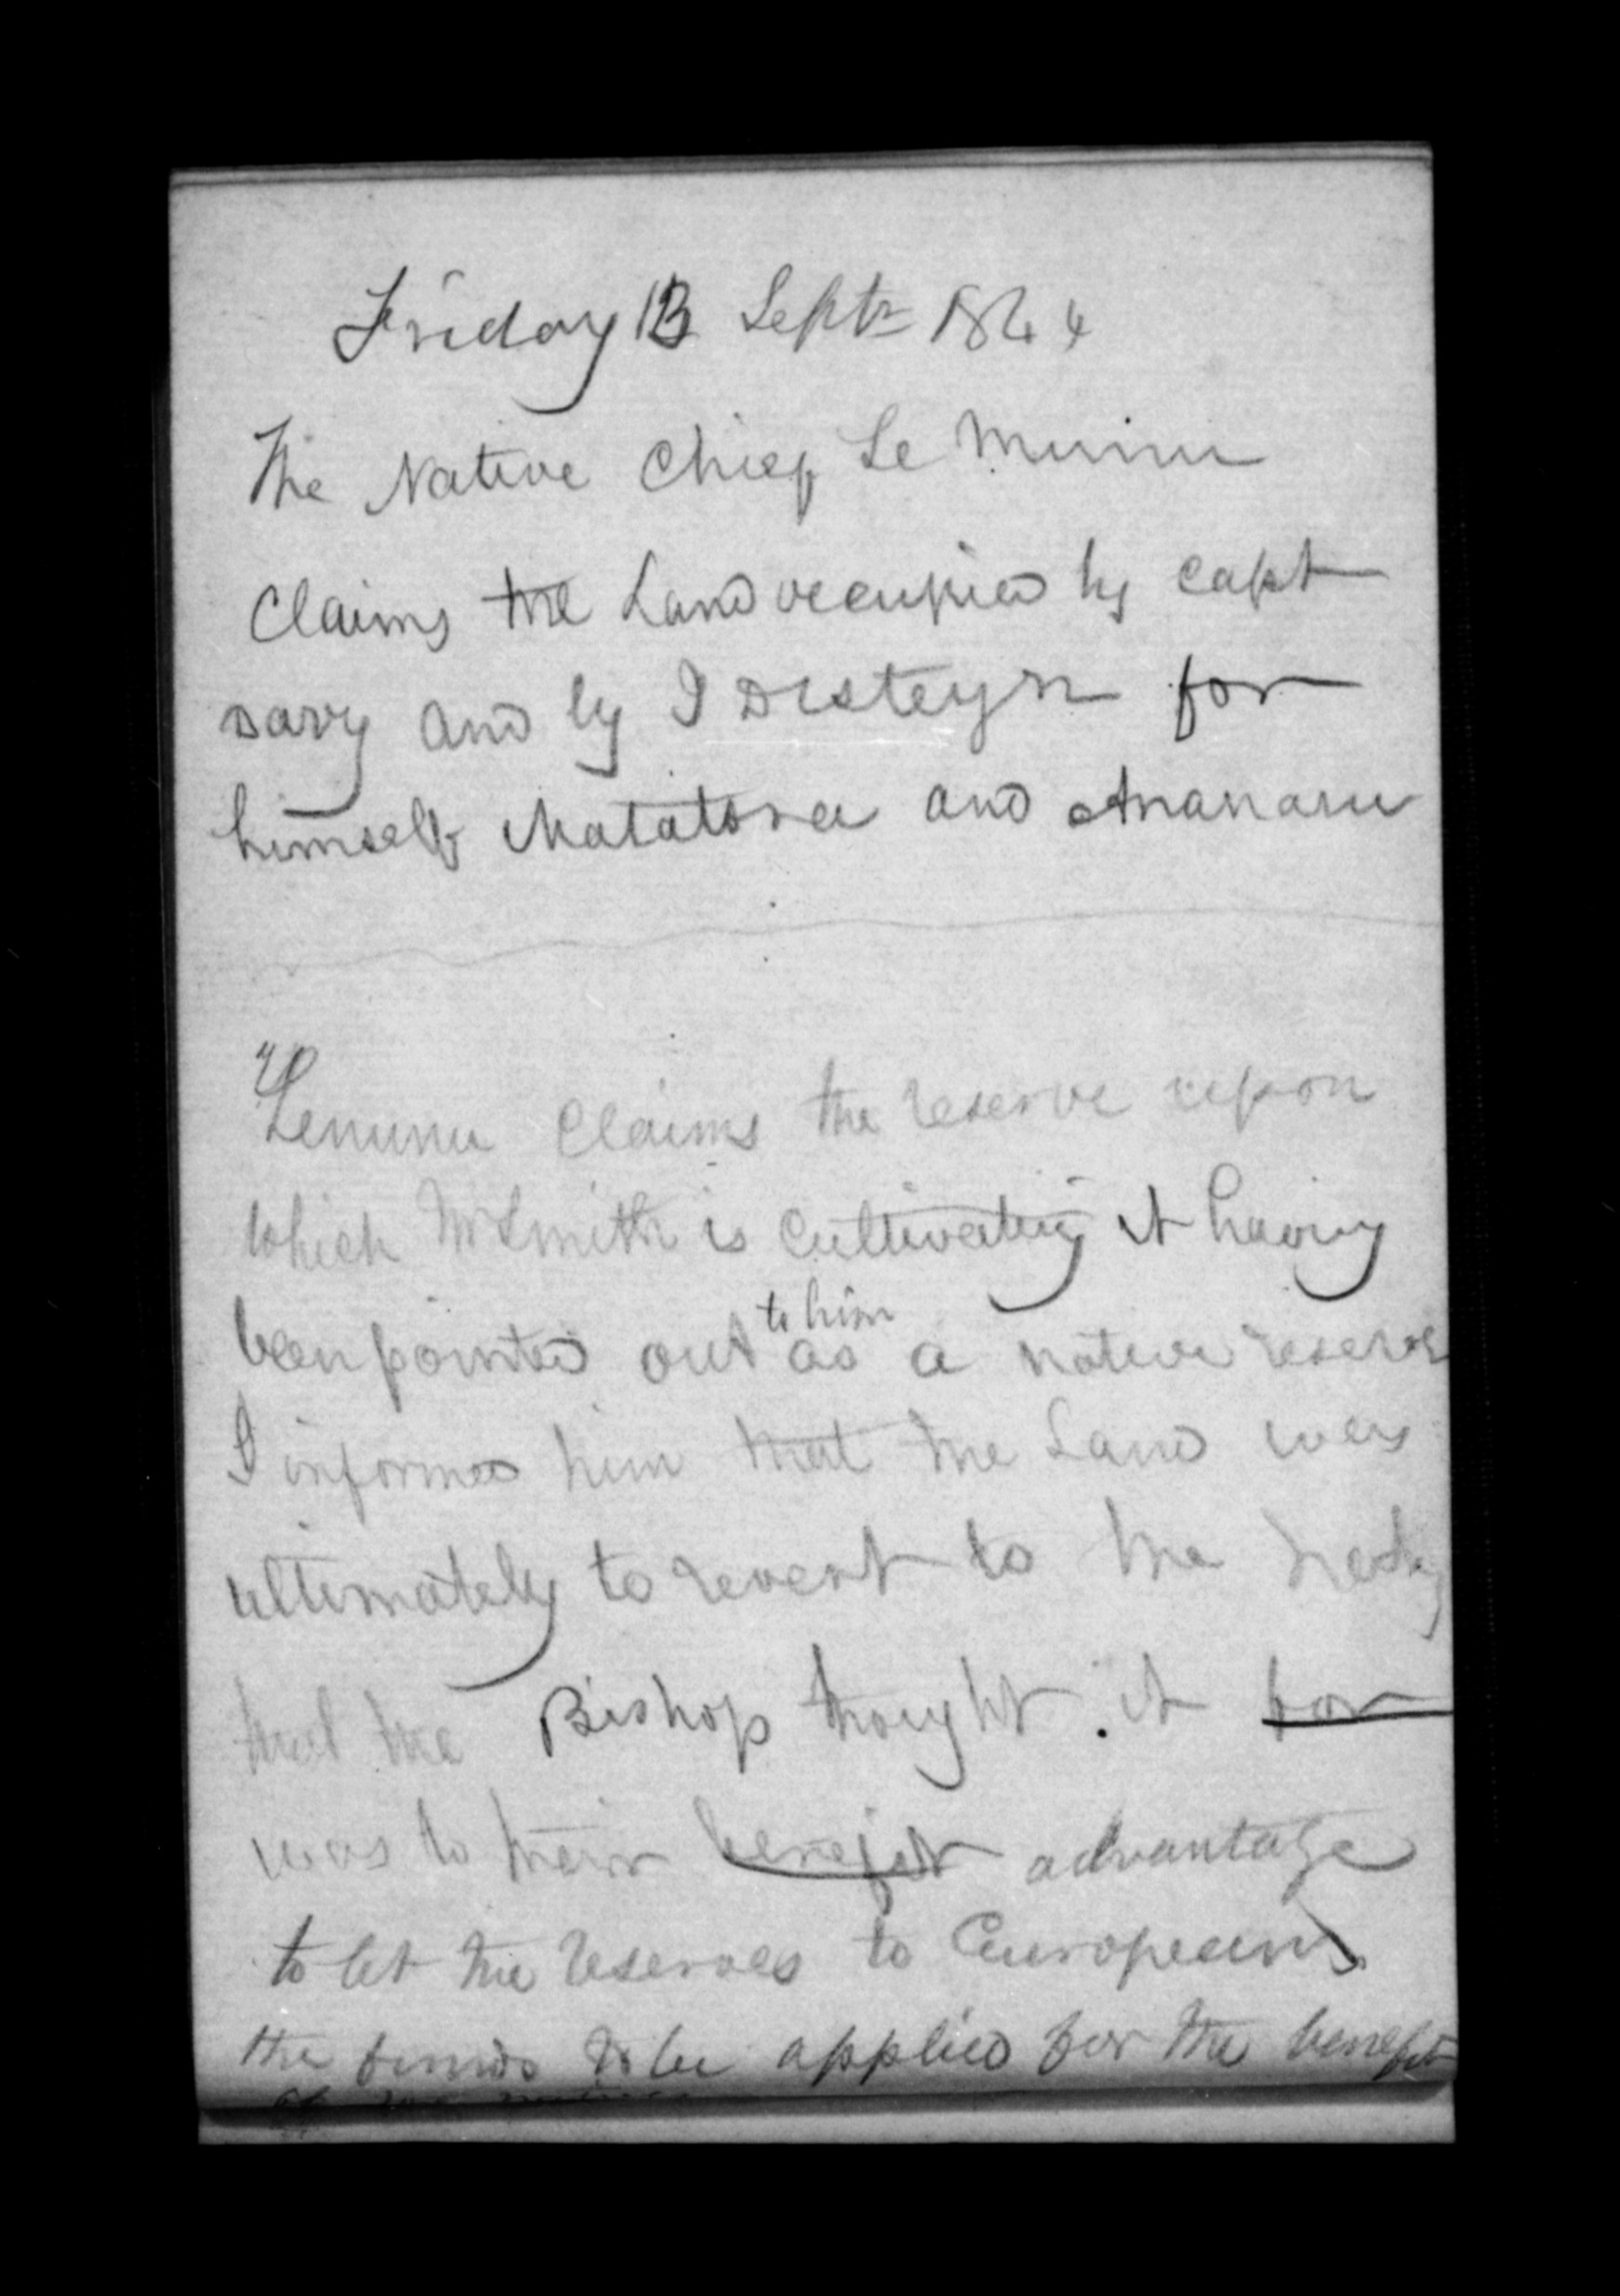 Friday 13 Septr 1844
The Native Chief Te Munu
Claims the Land occupied by capt
Davy and by I DeSteyn for
himself Matatora and Ananaru
Temunu Claims the reserve upon
which Mr Smith is Cultivating it having
been pointed out to him as a native reserve
I informed him that the Land was
ultimately to revert to the
that the Bishop thought it for
was to their benefit advantage
to let the reserves to Europeans
the funds to be applied for the benefit
of the natives